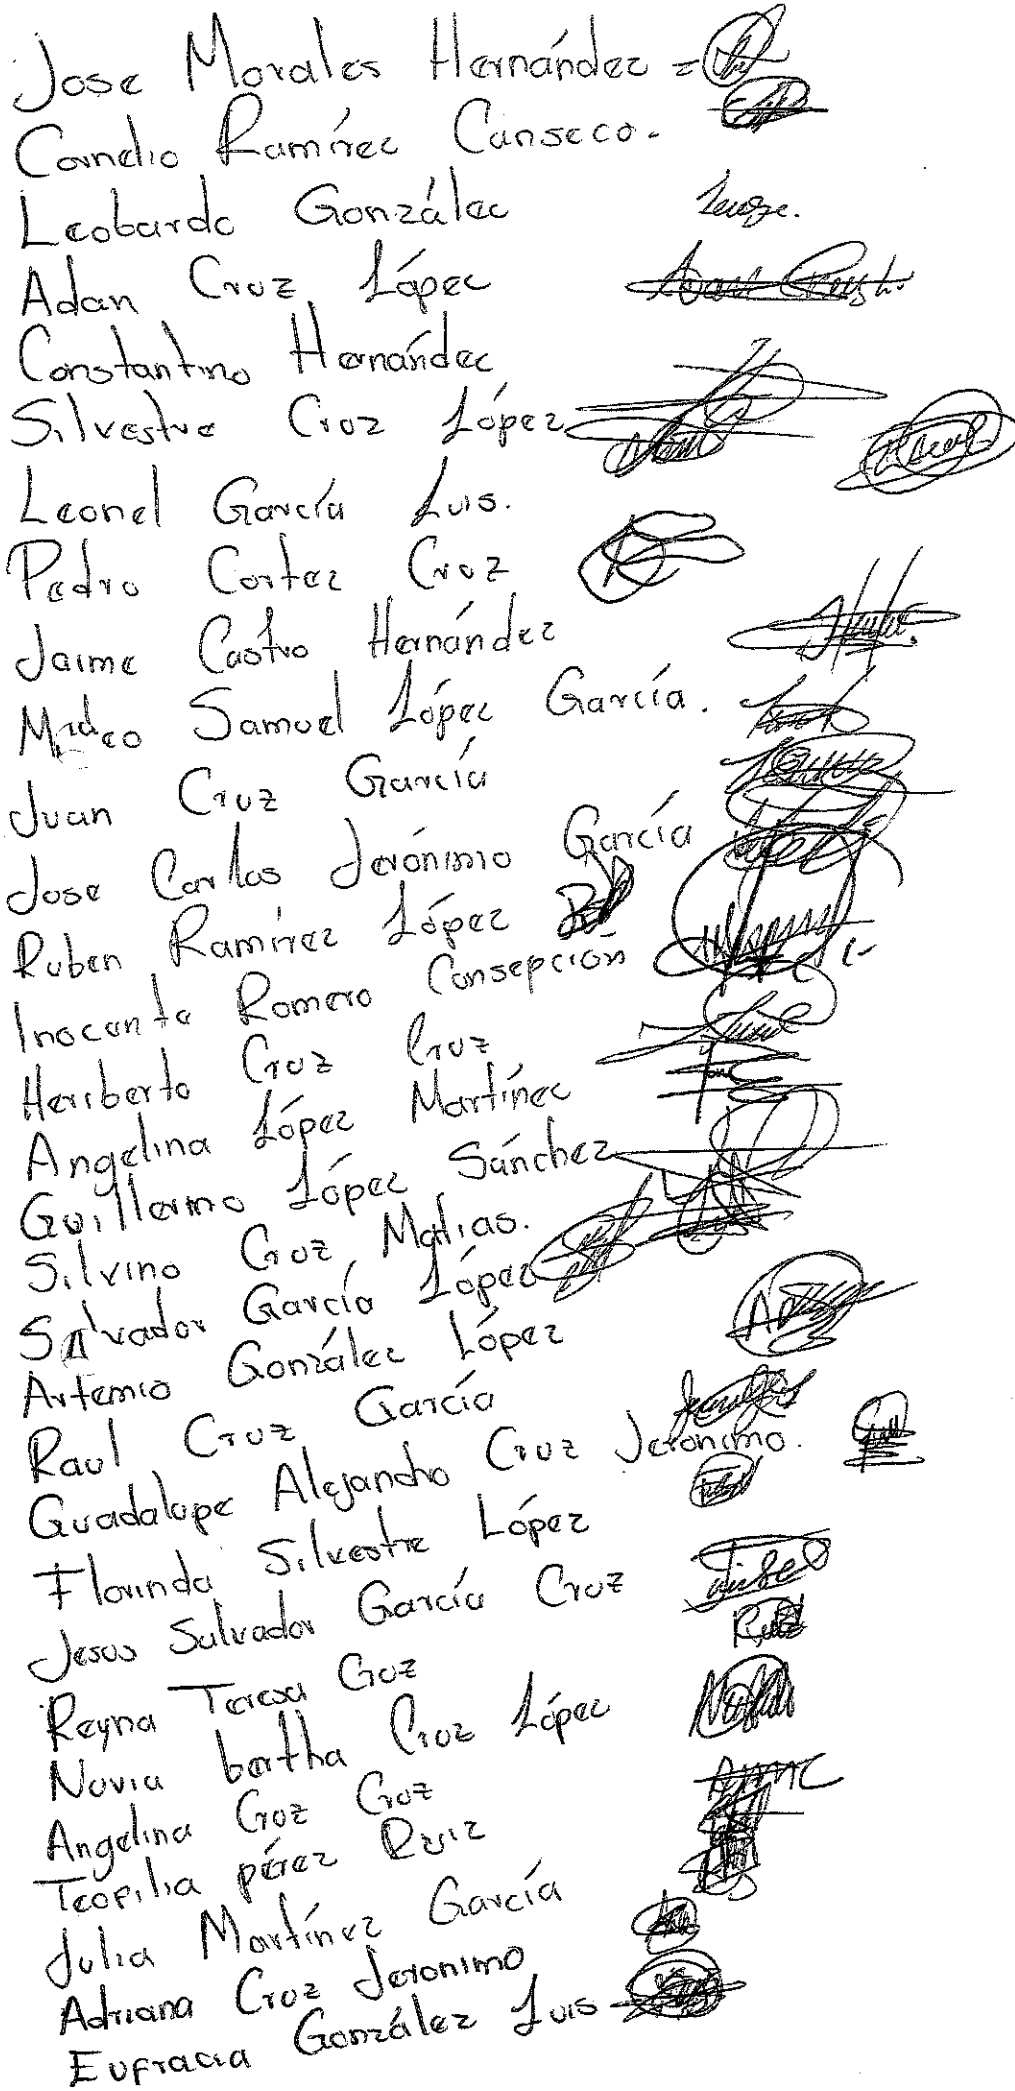 Jose Morales Hernández =
Cornelio Ramírez Canseco.
Leobardo González
Adan Cruz López
Constantino Hernández
Silvestre Cruz López
Leonel García Luis.
Pedro Cortez Cruz
Jaime Castro Hernández
Samuel López García.
Juan Cruz García
Jose Carlos Jerónimo García
Ruben Ramírez López
Inocente Romero Consepción
Heriberto Cruz Cruz
Angelina López Martínez
Guillermo López Sánchez
Silvino Cruz Matias.
Salvador García López
Artemio González López
Raul Cruz García
Guadalupe Alejandro Cruz Jeronimo.
Florinda Silvestre López
Jesus Salvador García Cruz
Reyna Teresa Cruz
Novia bertha Cruz López
Angelina Cruz Cruz
Teopilia pérez Ruiz
Julia Martínez García
Adriana Cruz Jeronimo
Eufracia González Luis